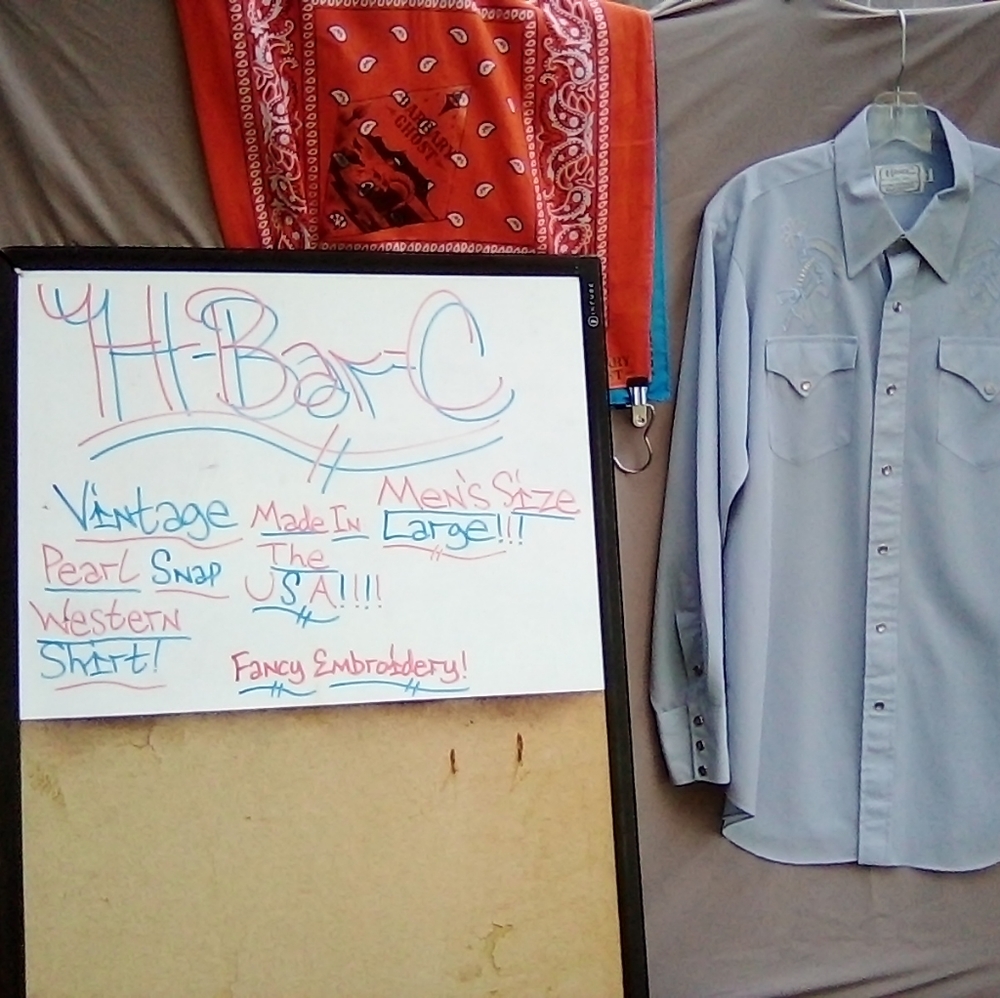 H-Bar-C
Vintage
Pearl Snap
Western
Shirt!
Made In
The
USA!!!!
Men's Size
Large!!!
Fancy Embroidery!
GHOST
INFUSE